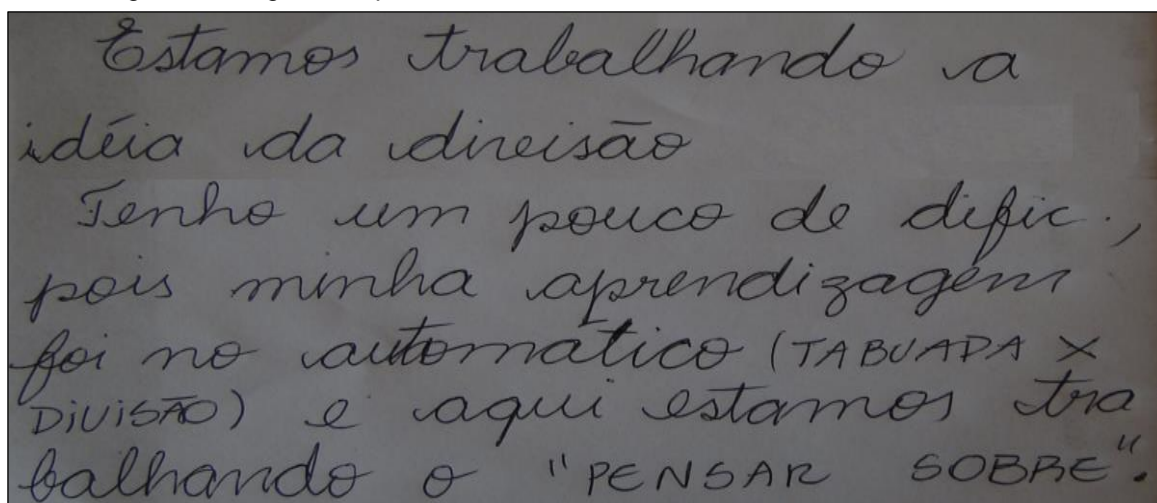 Estamos trabalhando a
idéia da divisão
Tenho um pouco de dific.,
pois minha aprendizagem
foi no automático (TABUADA X
DIVISÃO) e aqui estamos tra
balhando o "PENSAR SOBRE".